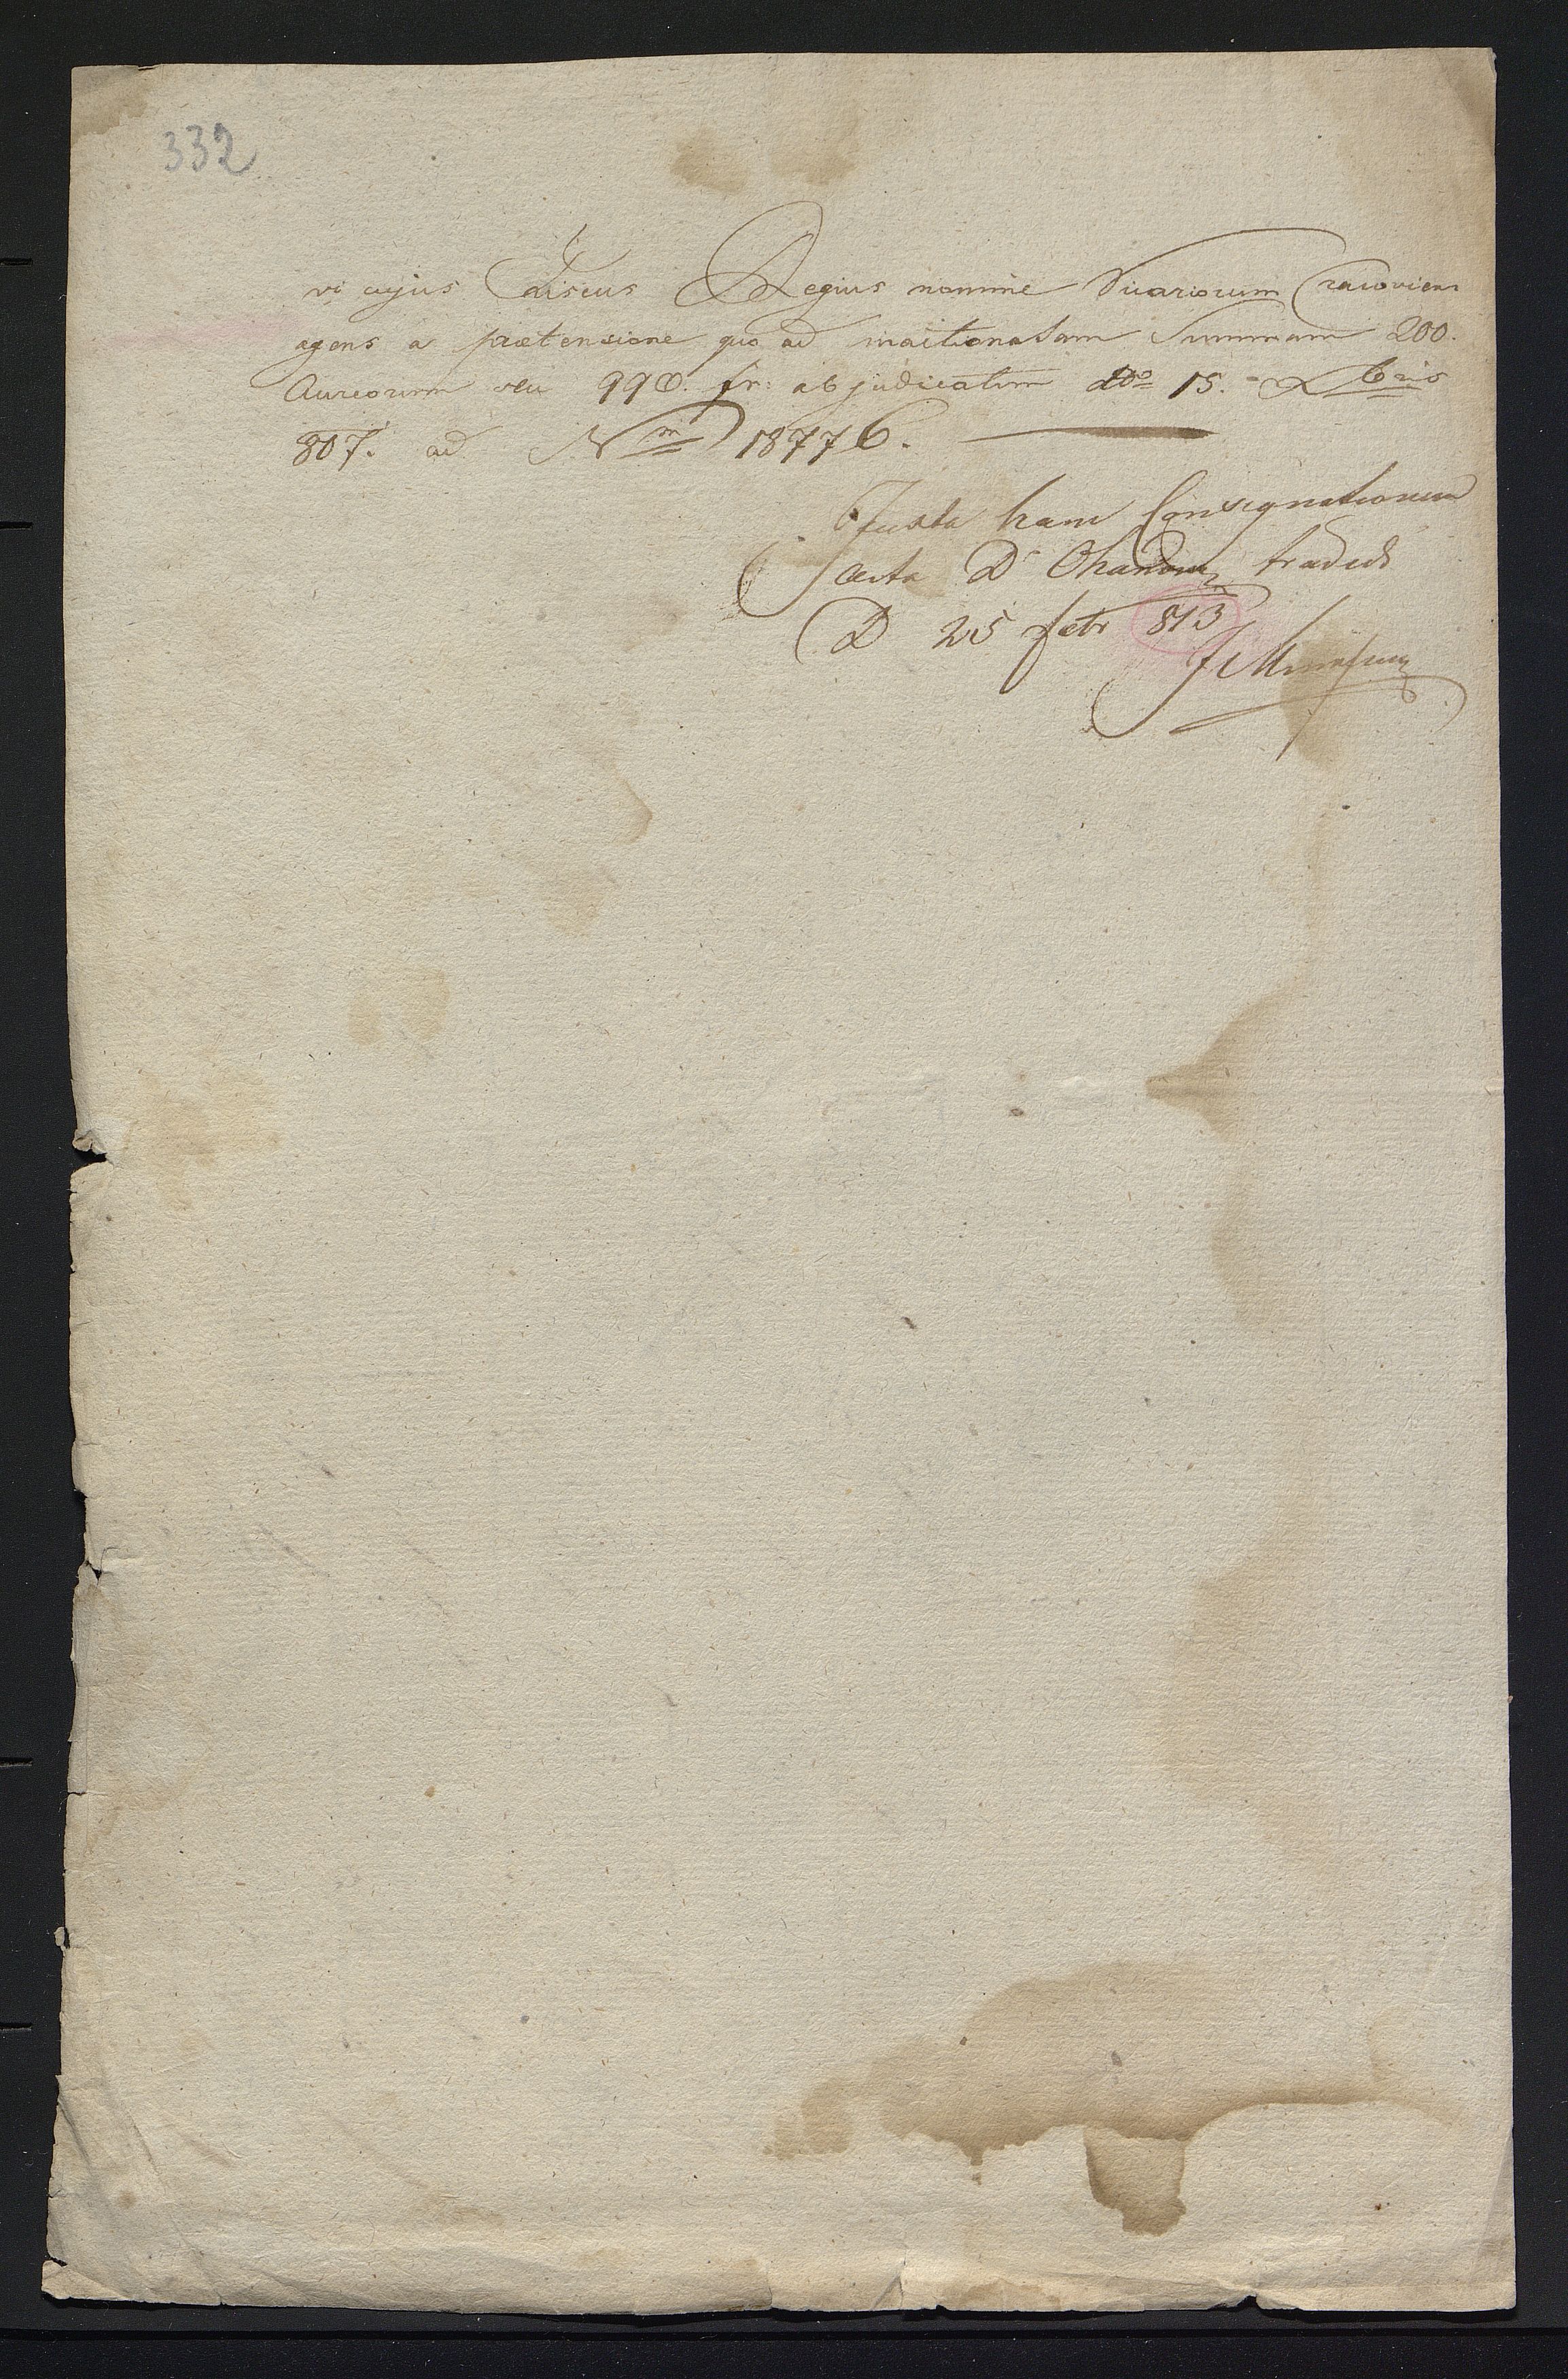 332
vi cujus Fiscus Regius nomine Vicariorum Cracovien
agens a praetensione quo ad inactionatam Summam 200.
Aureorum seu 990. fr: abjudicatum ddo 15. Xbris
807. ad Nrm 18776.
Juxta hanc Consignationem
acta D tradidi
D 25 febr 813